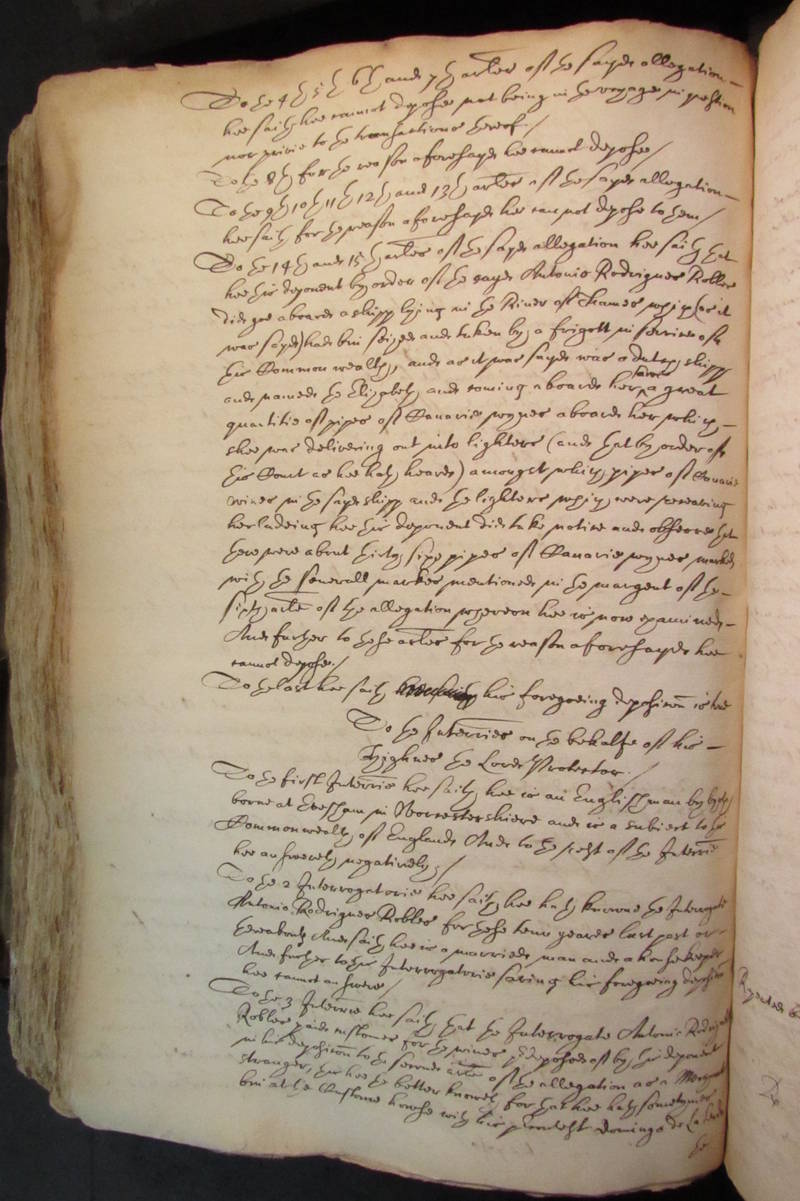 To the 4th 5th 6th and 7th arles of the sayd allegation
hee saith hee cannot depose not being in the voyage in question
nor privie to the transactions thereof./
To the 8th for the reason aforesayd hee cannot depose/
To the 9th 10th 11th 12th and 13th arles of the sayd allegation
hee saith for the reason aforesayd hee can not depose to them/
To the 14th and 15th arles of the sayd allegation hee saith that
hee this deponent by order of the sayd Antonio Rodrigues Robles
did goe aboard a shipp lying in the River of Thames which (as it
was sayd) had bin seized and taken by a frigott in service of
this Common wealth, and as it was sayd was a dutch shipp
and named the Elizabeth and coming aboard her sawe a great
quantitie of pipes of Canarie wynes aboard her which
shee was delivering out into lighters (and that by order of
this Court as hee hath heard) amongst which pipes of Canarie
wines in the sayd shipp and the lighters which were receaving
her ladeing hee this deponent did take notice and observe that
there were about thirty sixe pipes of Canarie wynes marked
with the severall markes mentioned in the margent of the
sixth arle of the allegation whereon hee is now examined
And further to these arles for the reason aforesayd hee
cannot depose./
To the last hee saith his foregoeing deposicon is true
To the Interries on the behalfe of his
Highnes the Lord Protector./
To the first Interrie hee saith hee is an Englishman by byrth
borne at Evesham in Worcestershiere and is a subiect to this
Commonwealth of England And to the rest of the Interrie
hee answereth negatively./
To the 2 Interrogatorie hee saith hee hath knowne the Interrogate
Antonio Rodrigues Robles for these tenn yeares last past or
thereabouts And saith hee is a married man and a housekeeper
And further to this Interrogatorie saving his foregoeing deposicon
hee cannot answere/
To the 3 Interrie hee saith that the Interrogate Antonio Rodrigues
Robles paid customes for the wines predeposed of by this deponent
in his deposicon to the second arle of the allegation as a Merchant
stranger, this hee the better knoweth for that hee hath sometymes
bin at the Custome howse with his Domingo de la
he